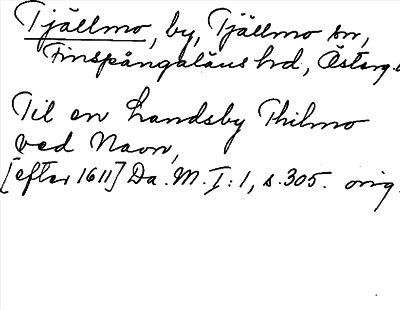 Tjällmo, by, Tjällmo sn,
Finspångaläns hrd, Österg.
Til en Landsby Thilmo
ved Navn,
[efter 1611] Da. M. I: 1, s. 305. orig.